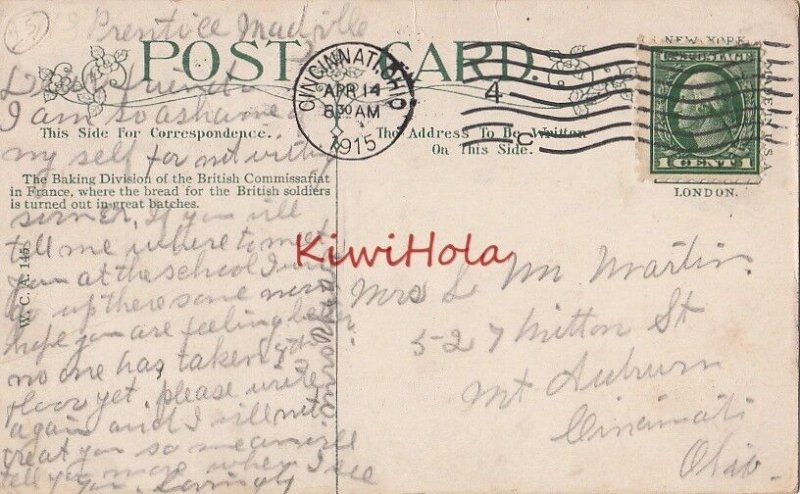 Prentice
POST CARD.
Dear friend
I am so ashamed
This Side For Correspondence.
my self for not writing
The Baking Division of the British Commissariat
in France, where the bread for the British soldiers
is turned out in great batches.
sooner, If you will
tell me where to meet
you at the school I will
go up there some
hope you are feeling better
no one has taken
floor yet. please write
again and I will not
treat you so mean will
tell you more when I see
you. Lovingly
W. C. A. 145
CINCINNATI, OHIO
APR 14
8 30 AM
1915
4
C
The Address To Be Written
On This Side.
NEW YORK
U.S. POSTAGE
1 CENT 1
LONDON.
KiwiHola
Mrs L. M. Martin
527 Milton St
Mt Auburn
Cincinnati
Ohio.